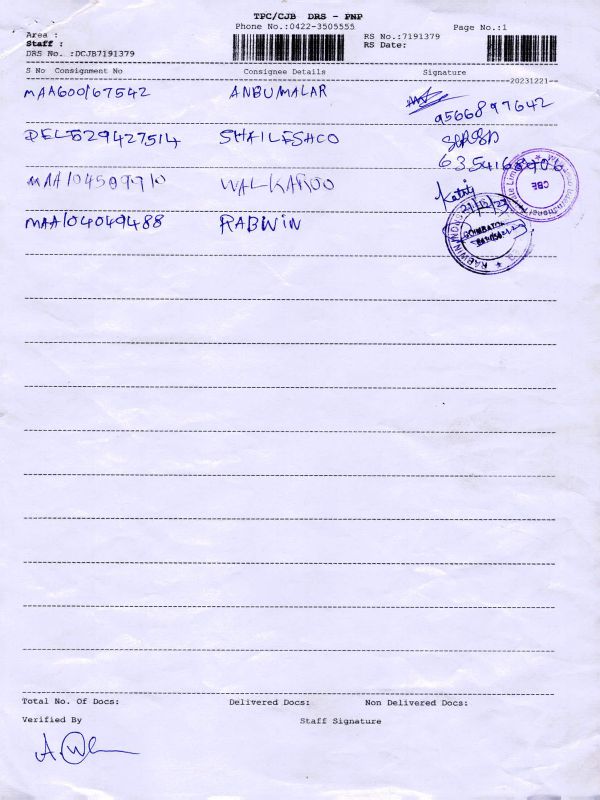 TPC/CJB DRS - PNP
Phone No.:0422-3505555
Page No.:1
Area :
RS No.:7191379
Staff :
RS Date:
DRS No. :DCJB7191379
S No Consignment No Consignee Details Signature
20231221
MAA600167542 ANBUMALAR
9566897642
DEL529427514 SHAILESHCO
6354168906
MAA104509910 WALKAROO
MAA104049488 RABWIN
CBE
RABWIN
Total No. Of Docs: Delivered Docs: Non Delivered Docs:
Verified By Staff Signature